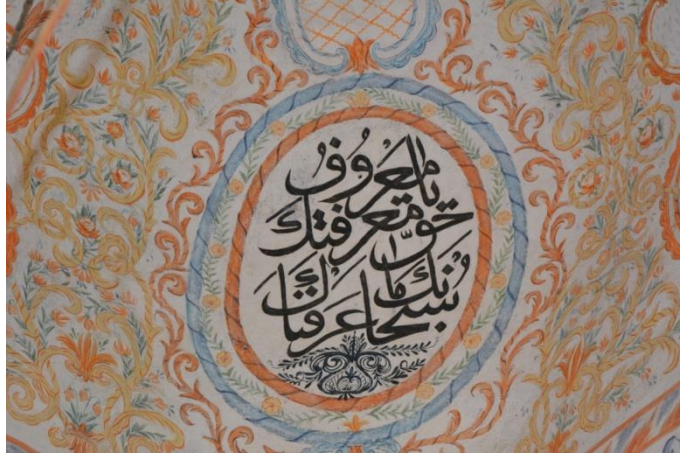 سبحانك ما عرفناك
حق معرفتك
يا معروف